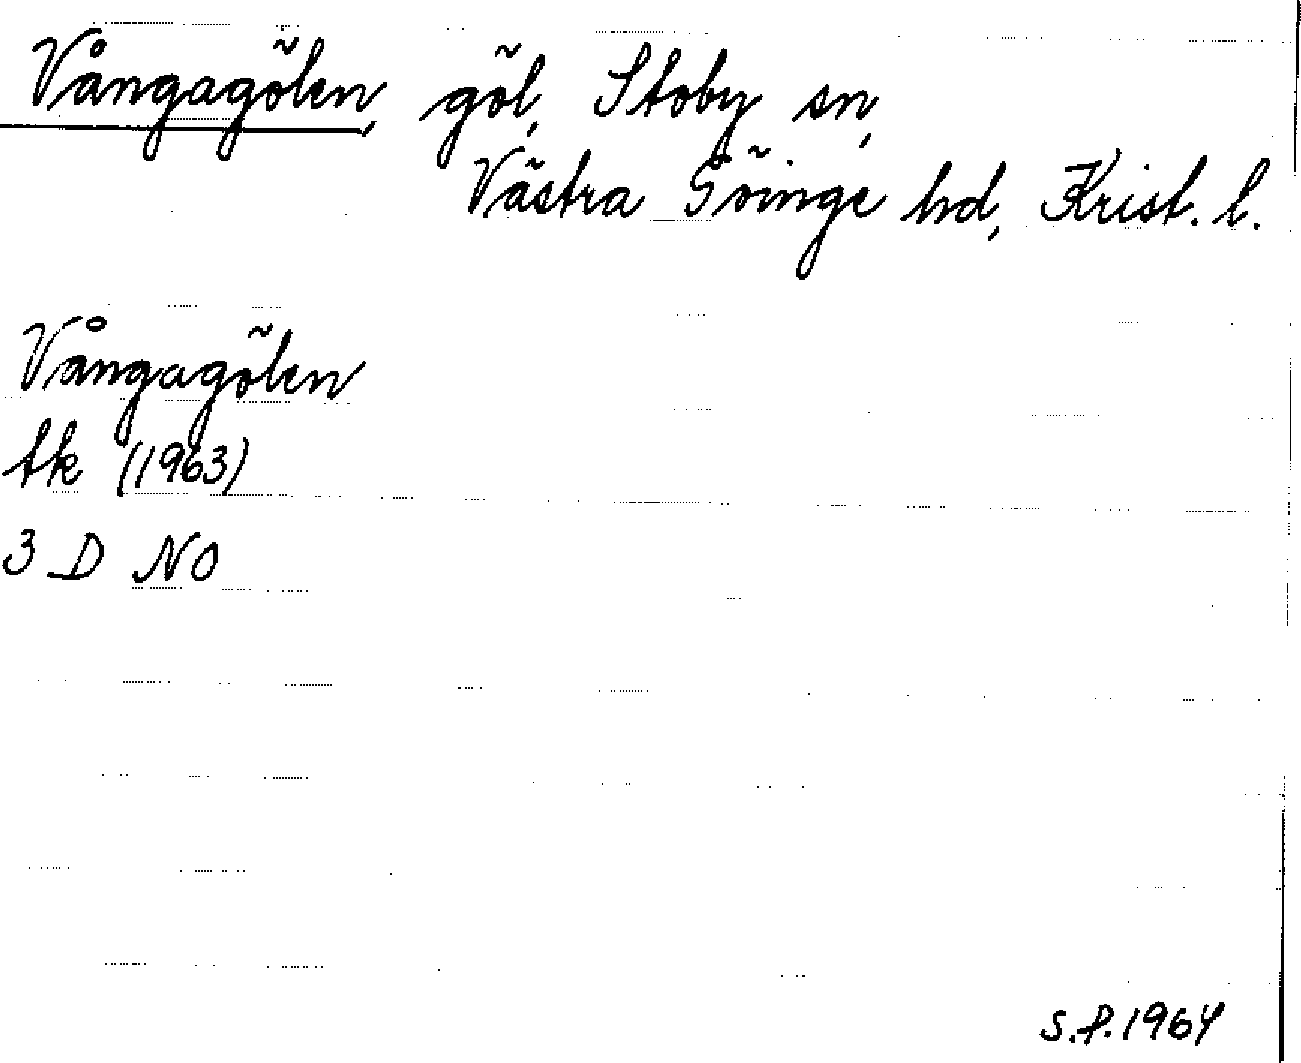 Vångagölen, göl, Stoby sn,
Västra Göinge hd, Krist. l.
Vångagölen
tk (1963)
3 D NO
S.P. 1964